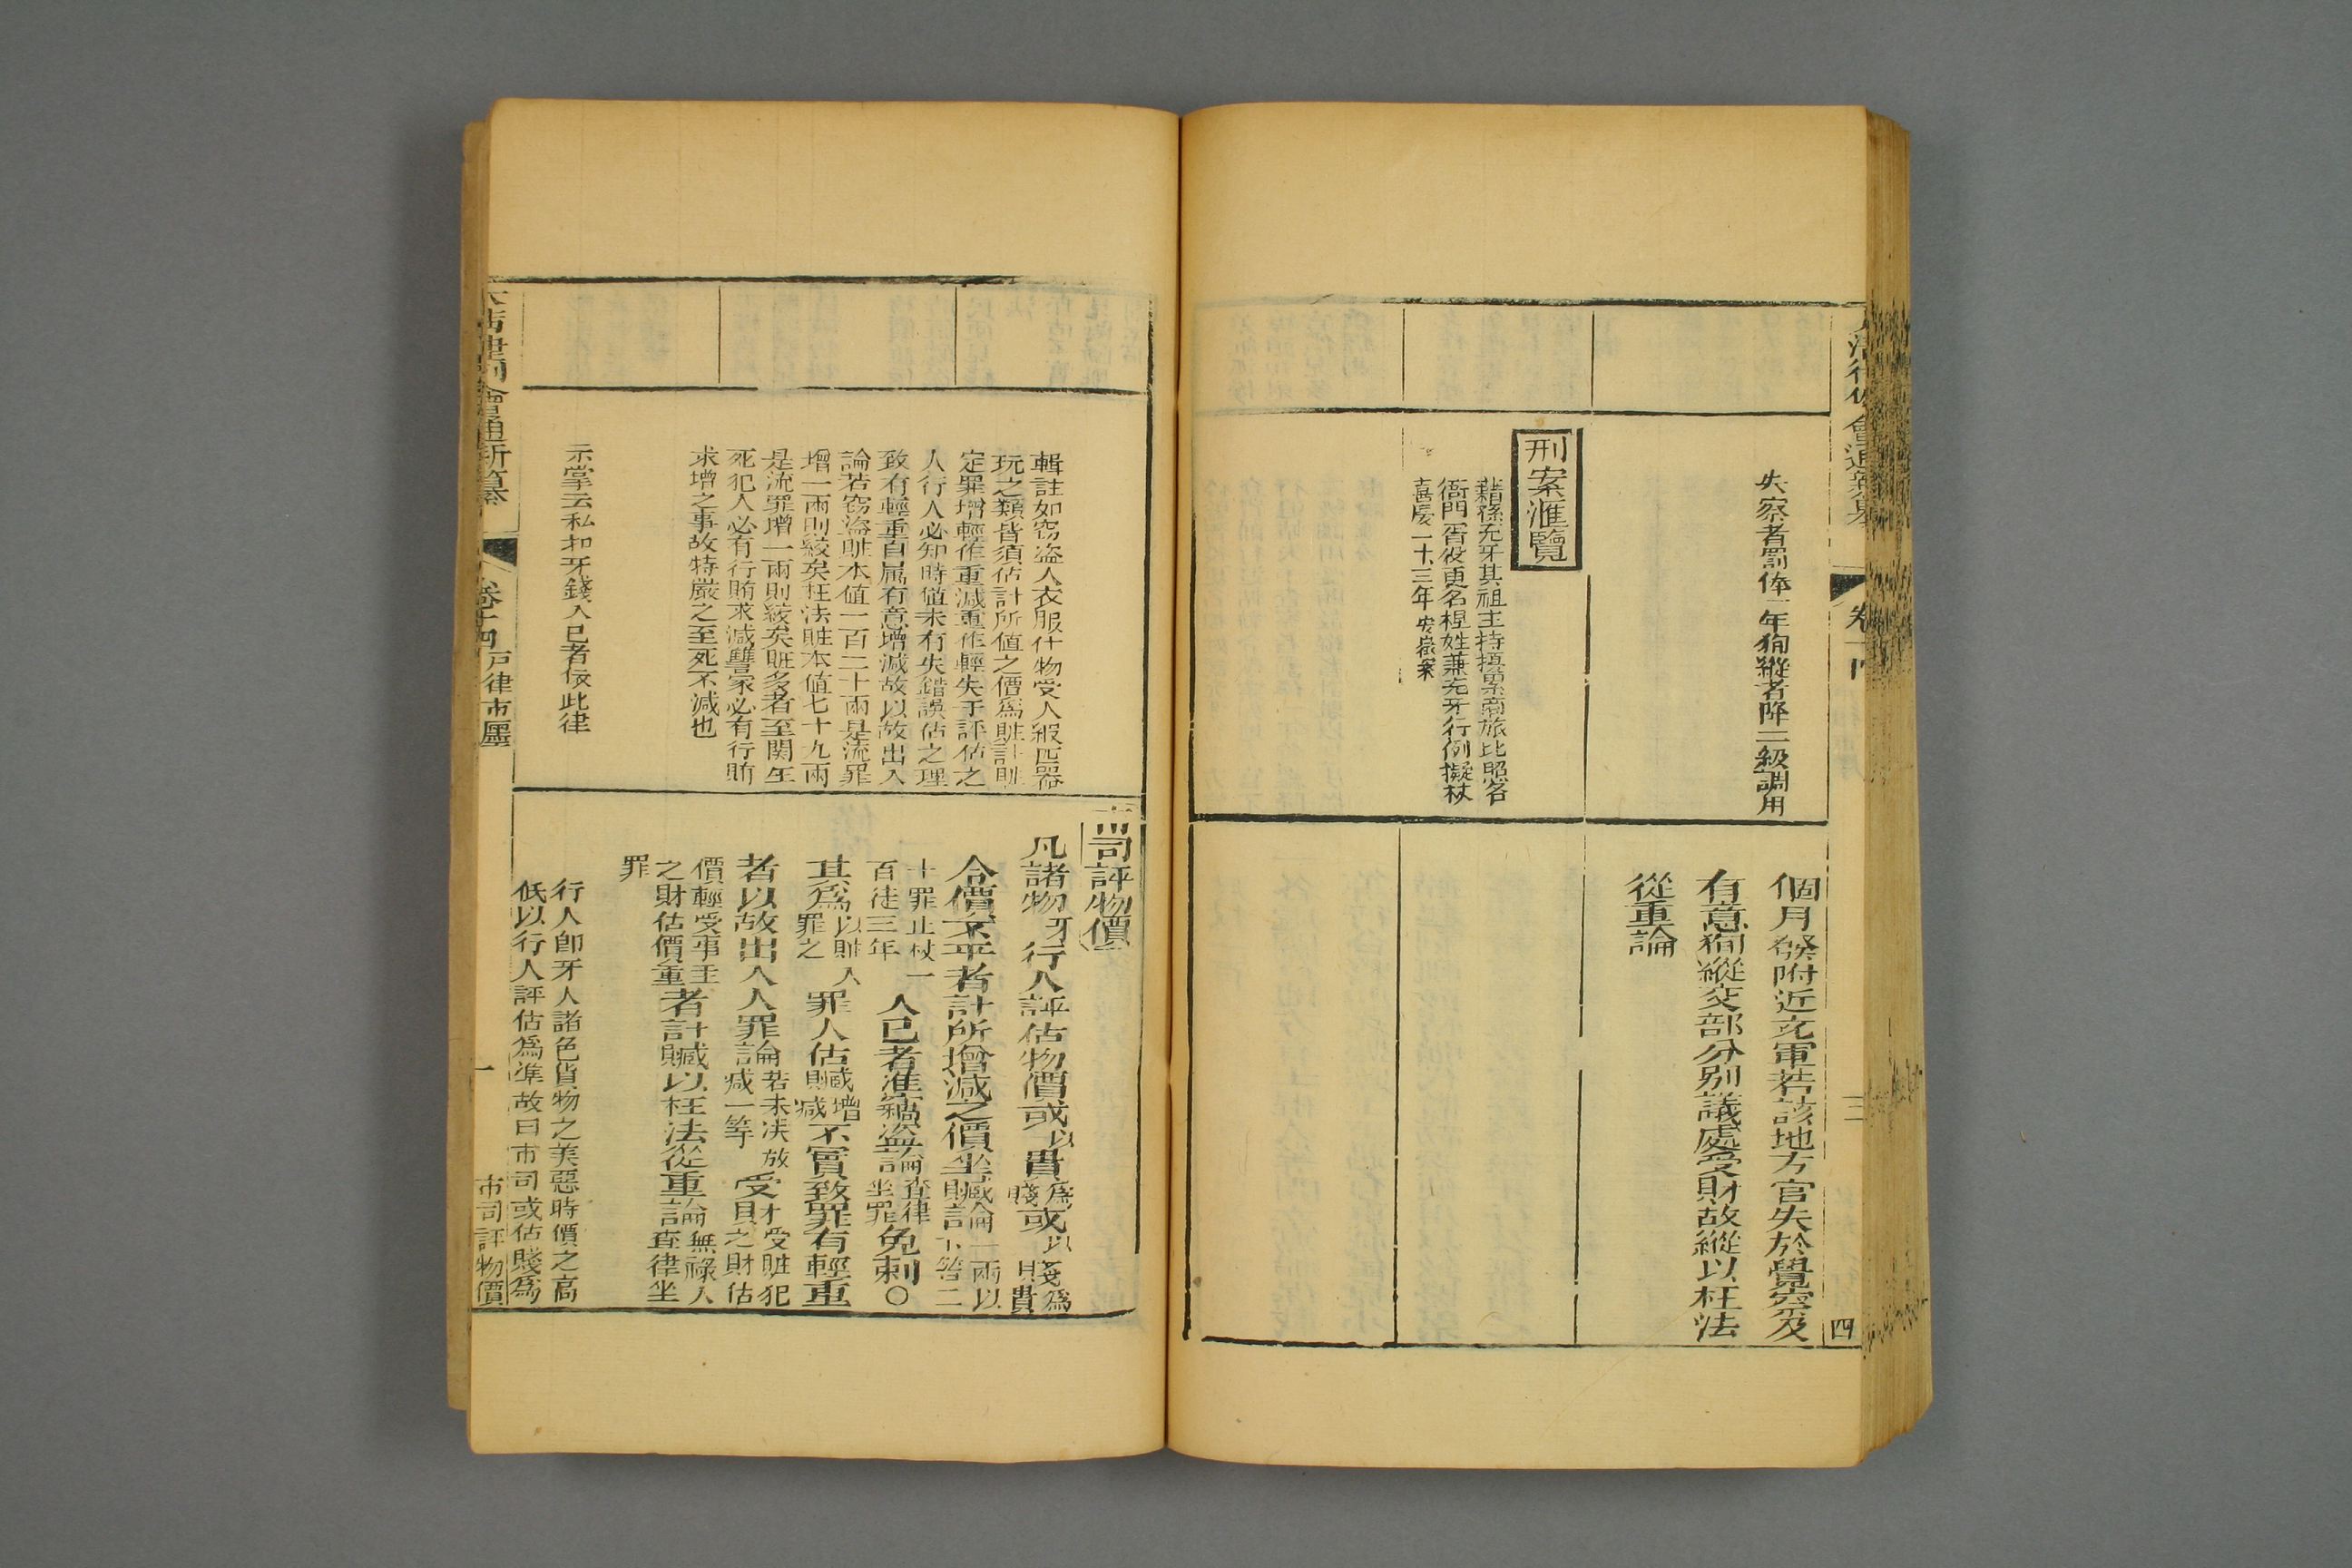 卷十四
四
失察者罰俸一年狥縱者降二級調用
刑案滙覽
藉孫充牙其祖主持揁累商旅比照各
衙門胥役更名捏姓兼充牙行例擬杖
嘉慶二十三年安徽案
個月發附近充軍若該地方官失於覺察及
有意狥縱交部分别議處受財故縱以枉法
從重論
輯註如窃盗人衣服什物受人緞疋器
玩之類皆須估計所值之價爲賍計賍
定罪增輕作重減重作輕失于評估之
人行人必知時值未有失錯誤估之理
致有輕重自属有意增減故以故出入
論若窃盗賍本值一百二十兩是流罪
增一兩則絞矣枉法賍本值七十九兩
是流罪增一兩則絞矣賍多者至関生
死犯人必有行賄求減讐家必有行賄
求增之事故特嚴之至死不減也
示掌云私扣牙錢入己者依此律
市司評物價
凡諸物牙行人評估物價或以貴爲賤或以賤爲貴
令價不平者計所增減之價坐贓論一兩以下笞二
十罪止杖一百徒三年入己者准竊盗論查律坐罪免刺〇
其爲以賍入罪之罪人估贓增減不實致罪有輕重
者以故出入人罪論若未决放減一等受財受賍犯之財估
價輕受事主之財估價重者計贓以枉法從重論無祿人查律坐
罪
行人卽牙人諸色貨物之美惡時價之高
低以行人評估爲準故曰市司或估賤爲
大清律例會通新纂
卷十四戸律市廛
一
市司評物價